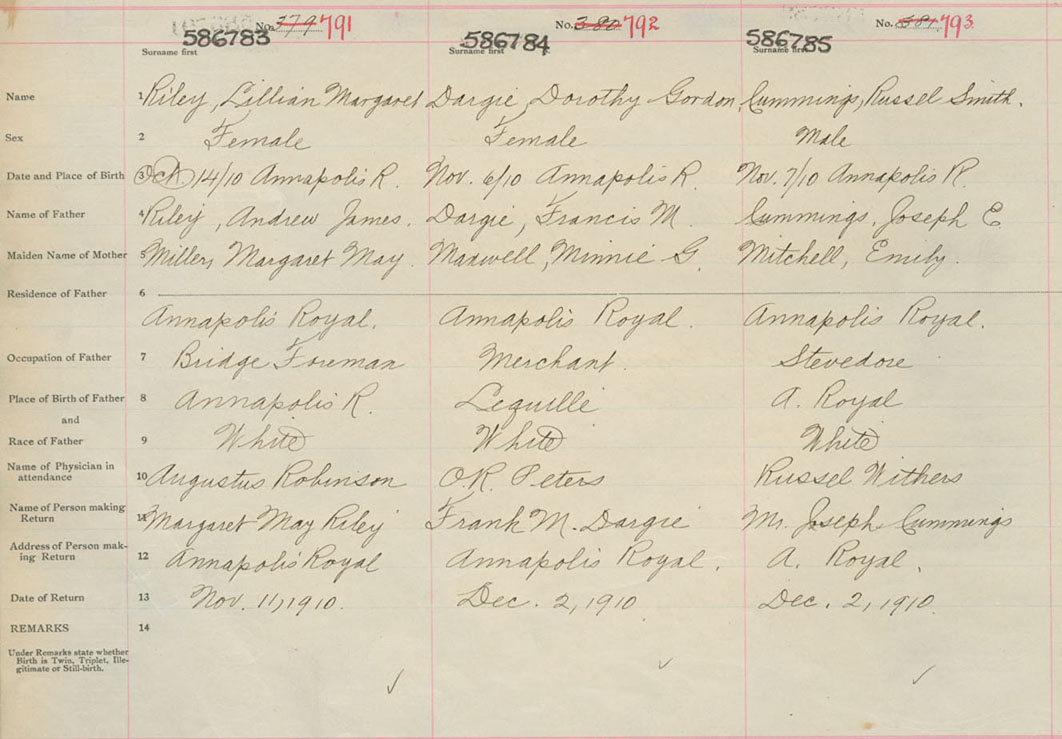 No. 379 791 No. 380 792 No. 381 793
586783 586784 586785
Surname first Surname first Surname first
Name 1 Riley, Lillian Margaret Dargie, Dorothy Gordon Cummings, Russel Smith.
Sex 2 Female Female Male
Date and Place of Birth 3 Oct 14/10 Annapolis R. Nov. 6/10 Annapolis R. Nov. 7/10 Annapolis R
Name of Father 4 Riley, Andrew James. Dargie, Francis M. Cummings, Joseph E.
Maiden Name of Mother 5 Miller, Margaret May. Maxwell, Minnie G. Mitchell, Emily.
Residence of Father 6
Annapolis Royal. Annapolis Royal. Annapolis Royal.
Occupation of Father 7 Bridge Foreman Merchant. Stevedore
Place of Birth of Father 8 Annapolis R. Lequille A. Royal
and
Race of Father 9 White White White
Name of Physician in
attendance 10 Augustus Robinson O.R. Peters Russel Withers
Name of Person making
Return 11 Margaret May Riley Frank M. Dargie Mr. Joseph Cummings
Address of Person mak-
ing Return 12 Annapolis Royal Annapolis Royal. A. Royal.
Date of Return 13 Nov. 11, 1910. Dec. 2, 1910 Dec. 2, 1910.
REMARKS 14
Under Remarks state whether
Birth is Twin, Triplet, Ille-
gitimate or Still-birth.